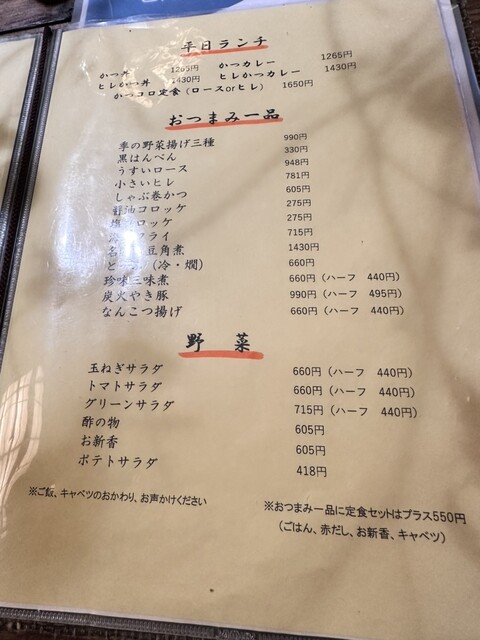 平日ランチ
かつ丼 1265円 かつカレー 1265円
ヒレかつ丼 1430円 ヒレかつカレー 1430円
かつコロ定食（ロースorヒレ） 1650円
おつまみ一品
季の野菜揚げ三種 990円
黒はんぺん 330円
うすいロース 948円
小さいヒレ 781円
しゃぶ巻かつ 605円
醤油コロッケ 275円
ロッケ 275円
フライ 715円
角煮 1430円
（冷・燗） 660円
珍味三味煮 660円（ハーフ 440円）
炭火やき豚 990円（ハーフ 495円）
なんこつ揚げ 660円（ハーフ 440円）
野菜
玉ねぎサラダ 660円（ハーフ 440円）
トマトサラダ 660円（ハーフ 440円）
グリーンサラダ 715円（ハーフ 440円）
酢の物 605円
お新香 605円
ポテトサラダ 418円
※ご飯、キャベツのおかわり、お声かけください
※おつまみ一品に定食セットはプラス550円
（ごはん、赤だし、お新香、キャベツ）